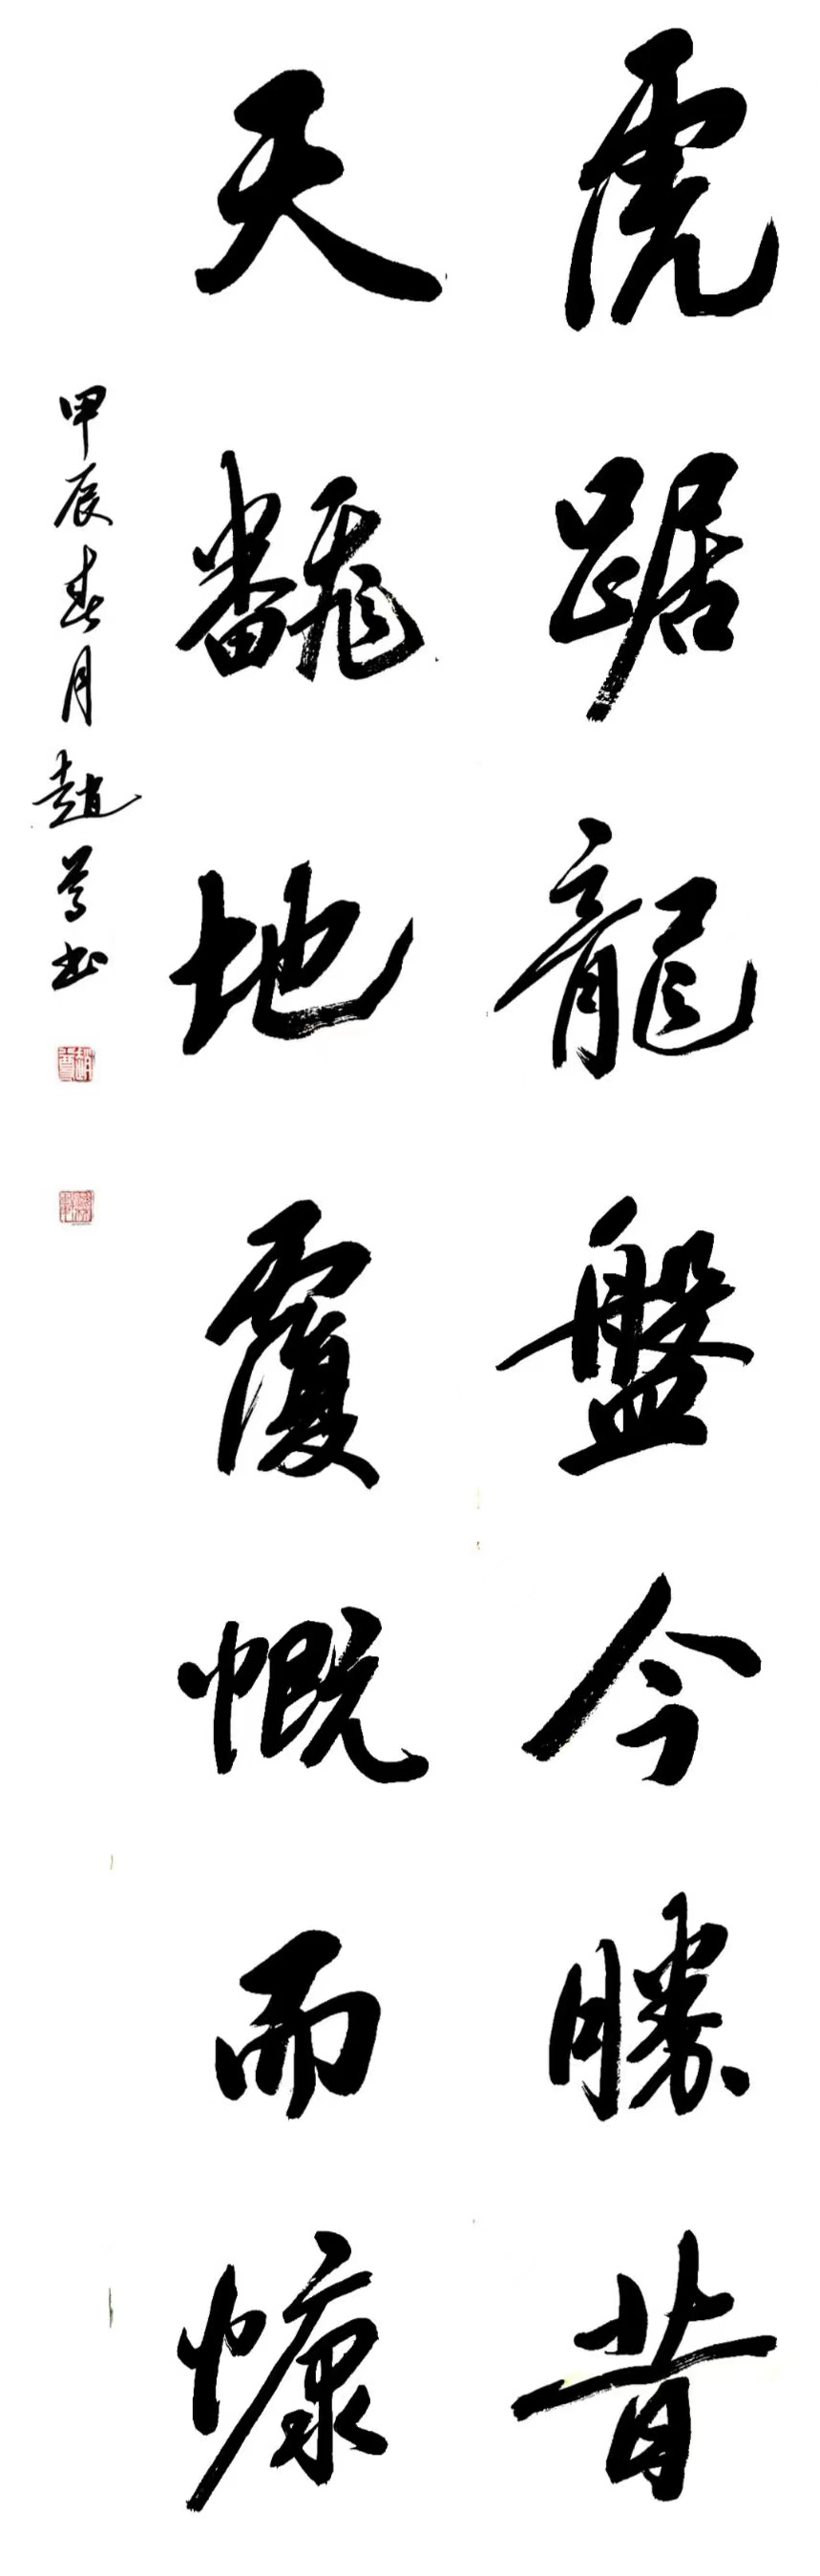 虎踞龍盤今勝昔
天飜地覆慨而慷
甲辰春月趙書